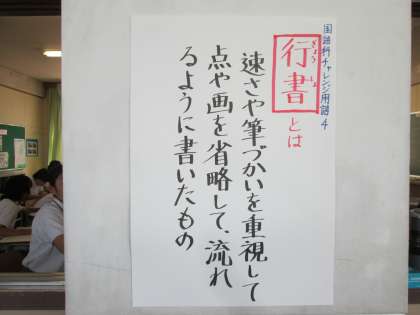 国語科チャレンジ用語4
行書とは
ぎょうしょ
速さや筆づかいを重視して
点や画を省略して、流れ
るように書いたもの